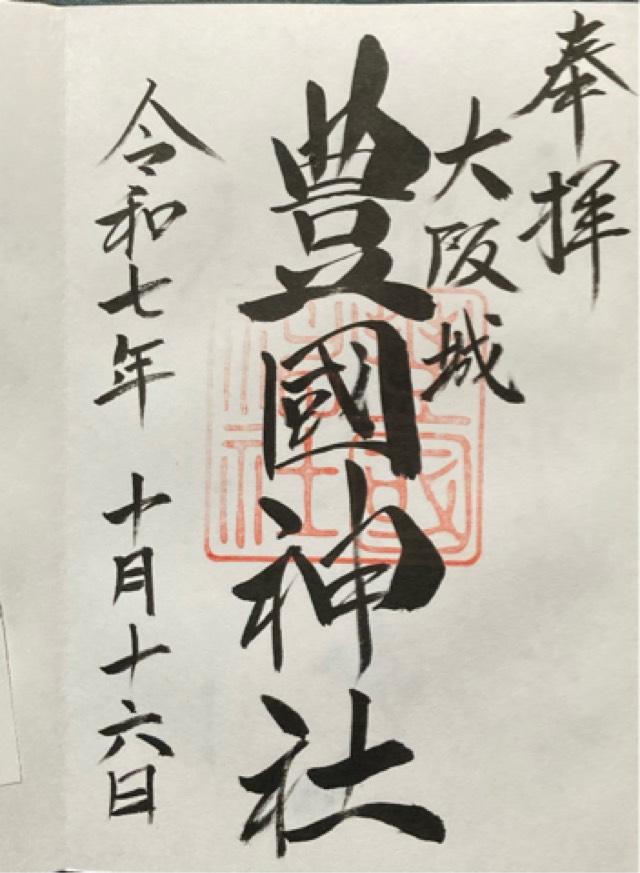 奉拝
大阪城
豊國神社
令和七年 十月十六日
豊國神社